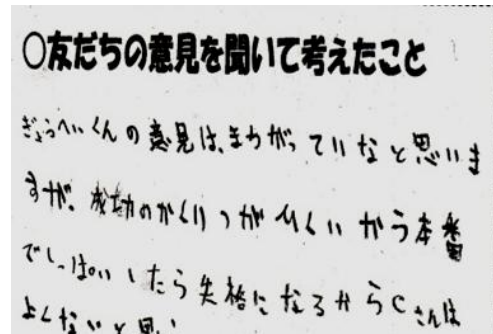 ○友だちの意見を聞いて考えたこと
ぎょうへいくんの意見は、まちがっていなと思いま
すが、成功のかくりつがひくいがう本番
でしっぱいしたら失格になるからCさんは
よくないと思い